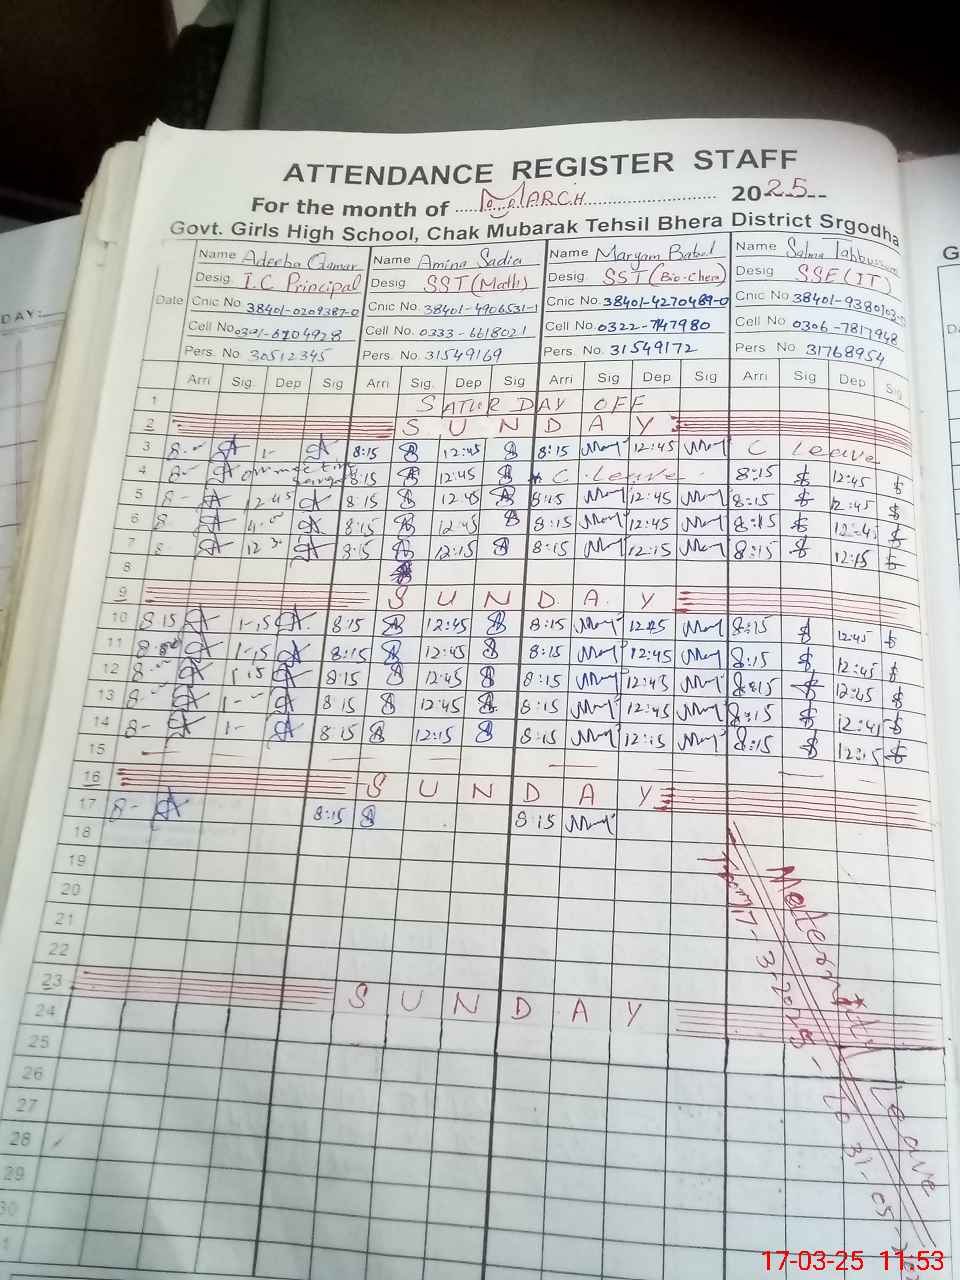 ATTENDANCE REGISTER STAFF
For the month of MARCH 2025
Govt. Girls High School, Chak Mubarak Tehsil Bhera District Srgodha
Name Adeeba Qamar Name Amina Sadia Name Maryam Batool Name Salma Tabbussum
Date Desig I.C Principal Desig SST (Math) Desig SST (Bio-Chem) Desig SSE (IT)
Cnic No 38401-0209387-0 Cnic No 38401-4906531-1 Cnic No. 38401-4270489-0 Cnic No 38401-9380102-
Cell No 0301-6704928 Cell No 0333-6618021 Cell No. 0322-747980 Cell No 0306-7817948
Pers. No 30512345 Pers. No. 31549169 Pers. No. 31549172 Pers. No 31768954
Arri Sig. Dep Sig Arri Sig. Dep Sig Arri Sig Dep Sig Arri Sig Dep Sig
1 SATURDAY OFF
2 SUNDAY
3 8- 1- 8:15 12:45 8:15 12:45 C Leave
4 8- 8:15 12:45 C. Leave 8:15 12:45
5 8- 12:45 8:15 12:45 8:15 12:45 8:15 12:45
6 8 4-00 8:15 12:45 8:15 12:45 8:15 12:45
7 8 12 30 8:15 12:15 8:15 12:15 8:15 12:15
8
9 SUNDAY
10 8 15 1-15 8:15 12:45 8:15 12:45 8:15 12:45
11 1-15 8:15 12:45 8:15 12:45 8:15 12:45
12 8- 1 15 8:15 12:45 8:15 12:45 8:15 12:45
13 8- 1- 8 15 12:45 8:15 12:45 8:15 12:45
14 8- 1- 8:15 12:15 8:15 12:15 8:15 12:15
15
16 SUNDAY
17 8- 8:15 8:15
18
19
20
21
22
23 SUNDAY
24
25
26
27
28
29
30
1
Maternity Leave
From 17-3-2025 - to 31-05-
DAY:
G
17-03-25 11:53